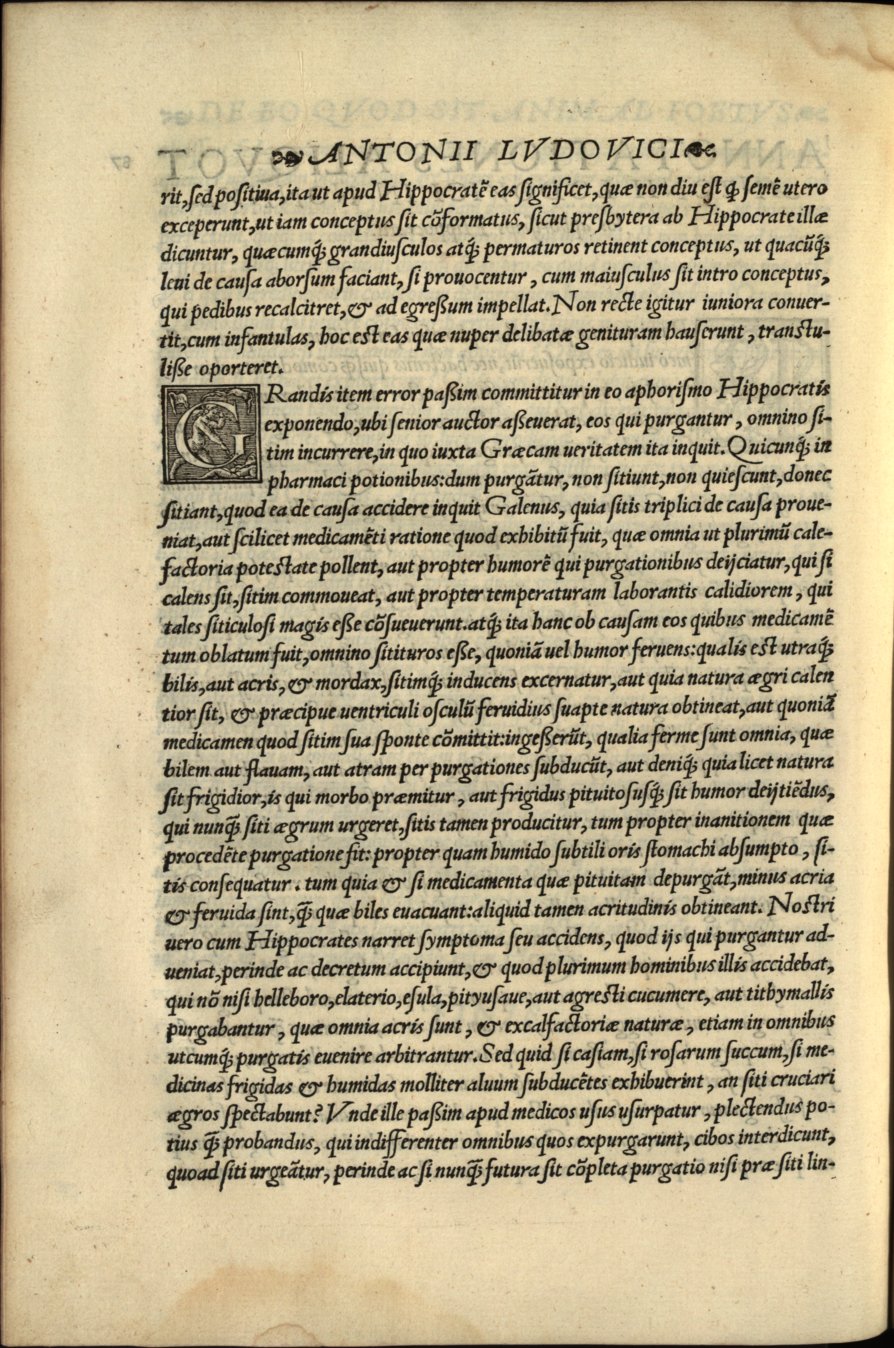 ANTONII LVDOVICI
rit, sed positiua, ita ut apud Hippocratẽ eas significet, quæ non diu est ꝙ semẽ utero
exceperunt, ut iam conceptus sit cõformatus, sicut presbytera ab Hippocrate illæ
dicuntur, quæcumq́; grandiusculos atq́; permaturos retinent conceptus, ut quacũq́;
leui de causa aborsum faciant, si prouocentur, cum maiusculus sit intro conceptus,
qui pedibus recalcitret, & ad egreßum impellat. Non recte igitur iuniora conuer-
tit, cum infantulas, hoc est eas quæ nuper delibatæ genituram hauserunt, transtu-
liße oporteret.
GRandis item error paßim committitur in eo aphorismo Hippocratis
exponendo, ubi senior auctor aßeuerat, eos qui purgantur, omnino si-
tim incurrere, in quo iuxta Græcam ueritatem ita inquit. Quicunq́; in
pharmaci potionibus: dum purgãtur, non sitiunt, non quiescunt, donec
sitiant, quod ea de causa accidere inquit Galenus, quia sitis triplici de causa proue-
niat, aut scilicet medicamẽti ratione quod exhibitũ fuit, quæ omnia ut plurimũ cale-
factoria potestate pollent, aut propter humorẽ qui purgationibus deijciatur, qui si
calens sit, sitim commoueat, aut propter temperaturam laborantis calidiorem, qui
tales siticulosi magis eße cõsueuerunt. atq́; ita hanc ob causam eos quibus medicamẽ
tum oblatum fuit, omnino sitituros eße, quoniã uel humor feruens: qualis est utraq́;
bilis, aut acris, & mordax, sitimq́; inducens excernatur, aut quia natura ægri calen
tior sit, & præcipue uentriculi osculũ feruidius suapte natura obtineat, aut quoniã
medicamen quod sitim sua sponte cõmittit: ingeßerũt, qualia ferme sunt omnia, quæ
bilem aut flauam, aut atram per purgationes subducũt, aut deniq́; quia licet natura
sit frigidior, is qui morbo præmitur, aut frigidus pituitosusq́; sit humor deijtiẽdus,
qui nunq̃ siti ægrum urgeret, sitis tamen producitur, tum propter inanitionem quæ
procedẽte purgatione fit: propter quam humido subtili oris stomachi absumpto, si-
tis consequatur. tum quia & si medicamenta quæ pituitam depurgãt, minus acria
& feruida sint, q̃ quæ biles euacuant: aliquid tamen acritudinis obtineant. Nostri
uero cum Hippocrates narret symptoma seu accidens, quod ijs qui purgantur ad-
ueniat, perinde ac decretum accipiunt, & quod plurimum hominibus illis accidebat,
qui nõ nisi helleboro, elaterio, esula, pityusaue, aut agresti cucumere, aut tithymallis
purgabantur, quæ omnia acris sunt, & excalfactoriæ naturæ, etiam in omnibus
utcumq́; purgatis euenire arbitrantur. Sed quid si casiam, si rosarum succum, si me-
dicinas frigidas & humidas molliter aluum subducẽtes exhibuerint, an siti cruciari
ægros spectabunt? Vnde ille paßim apud medicos usus usurpatur, plectendus po-
tius q̃ probandus, qui indifferenter omnibus quos expurgarunt, cibos interdicunt,
quoad siti urgeãtur, perinde ac si nunq̃ futura sit cõpleta purgatio nisi præ siti lin-